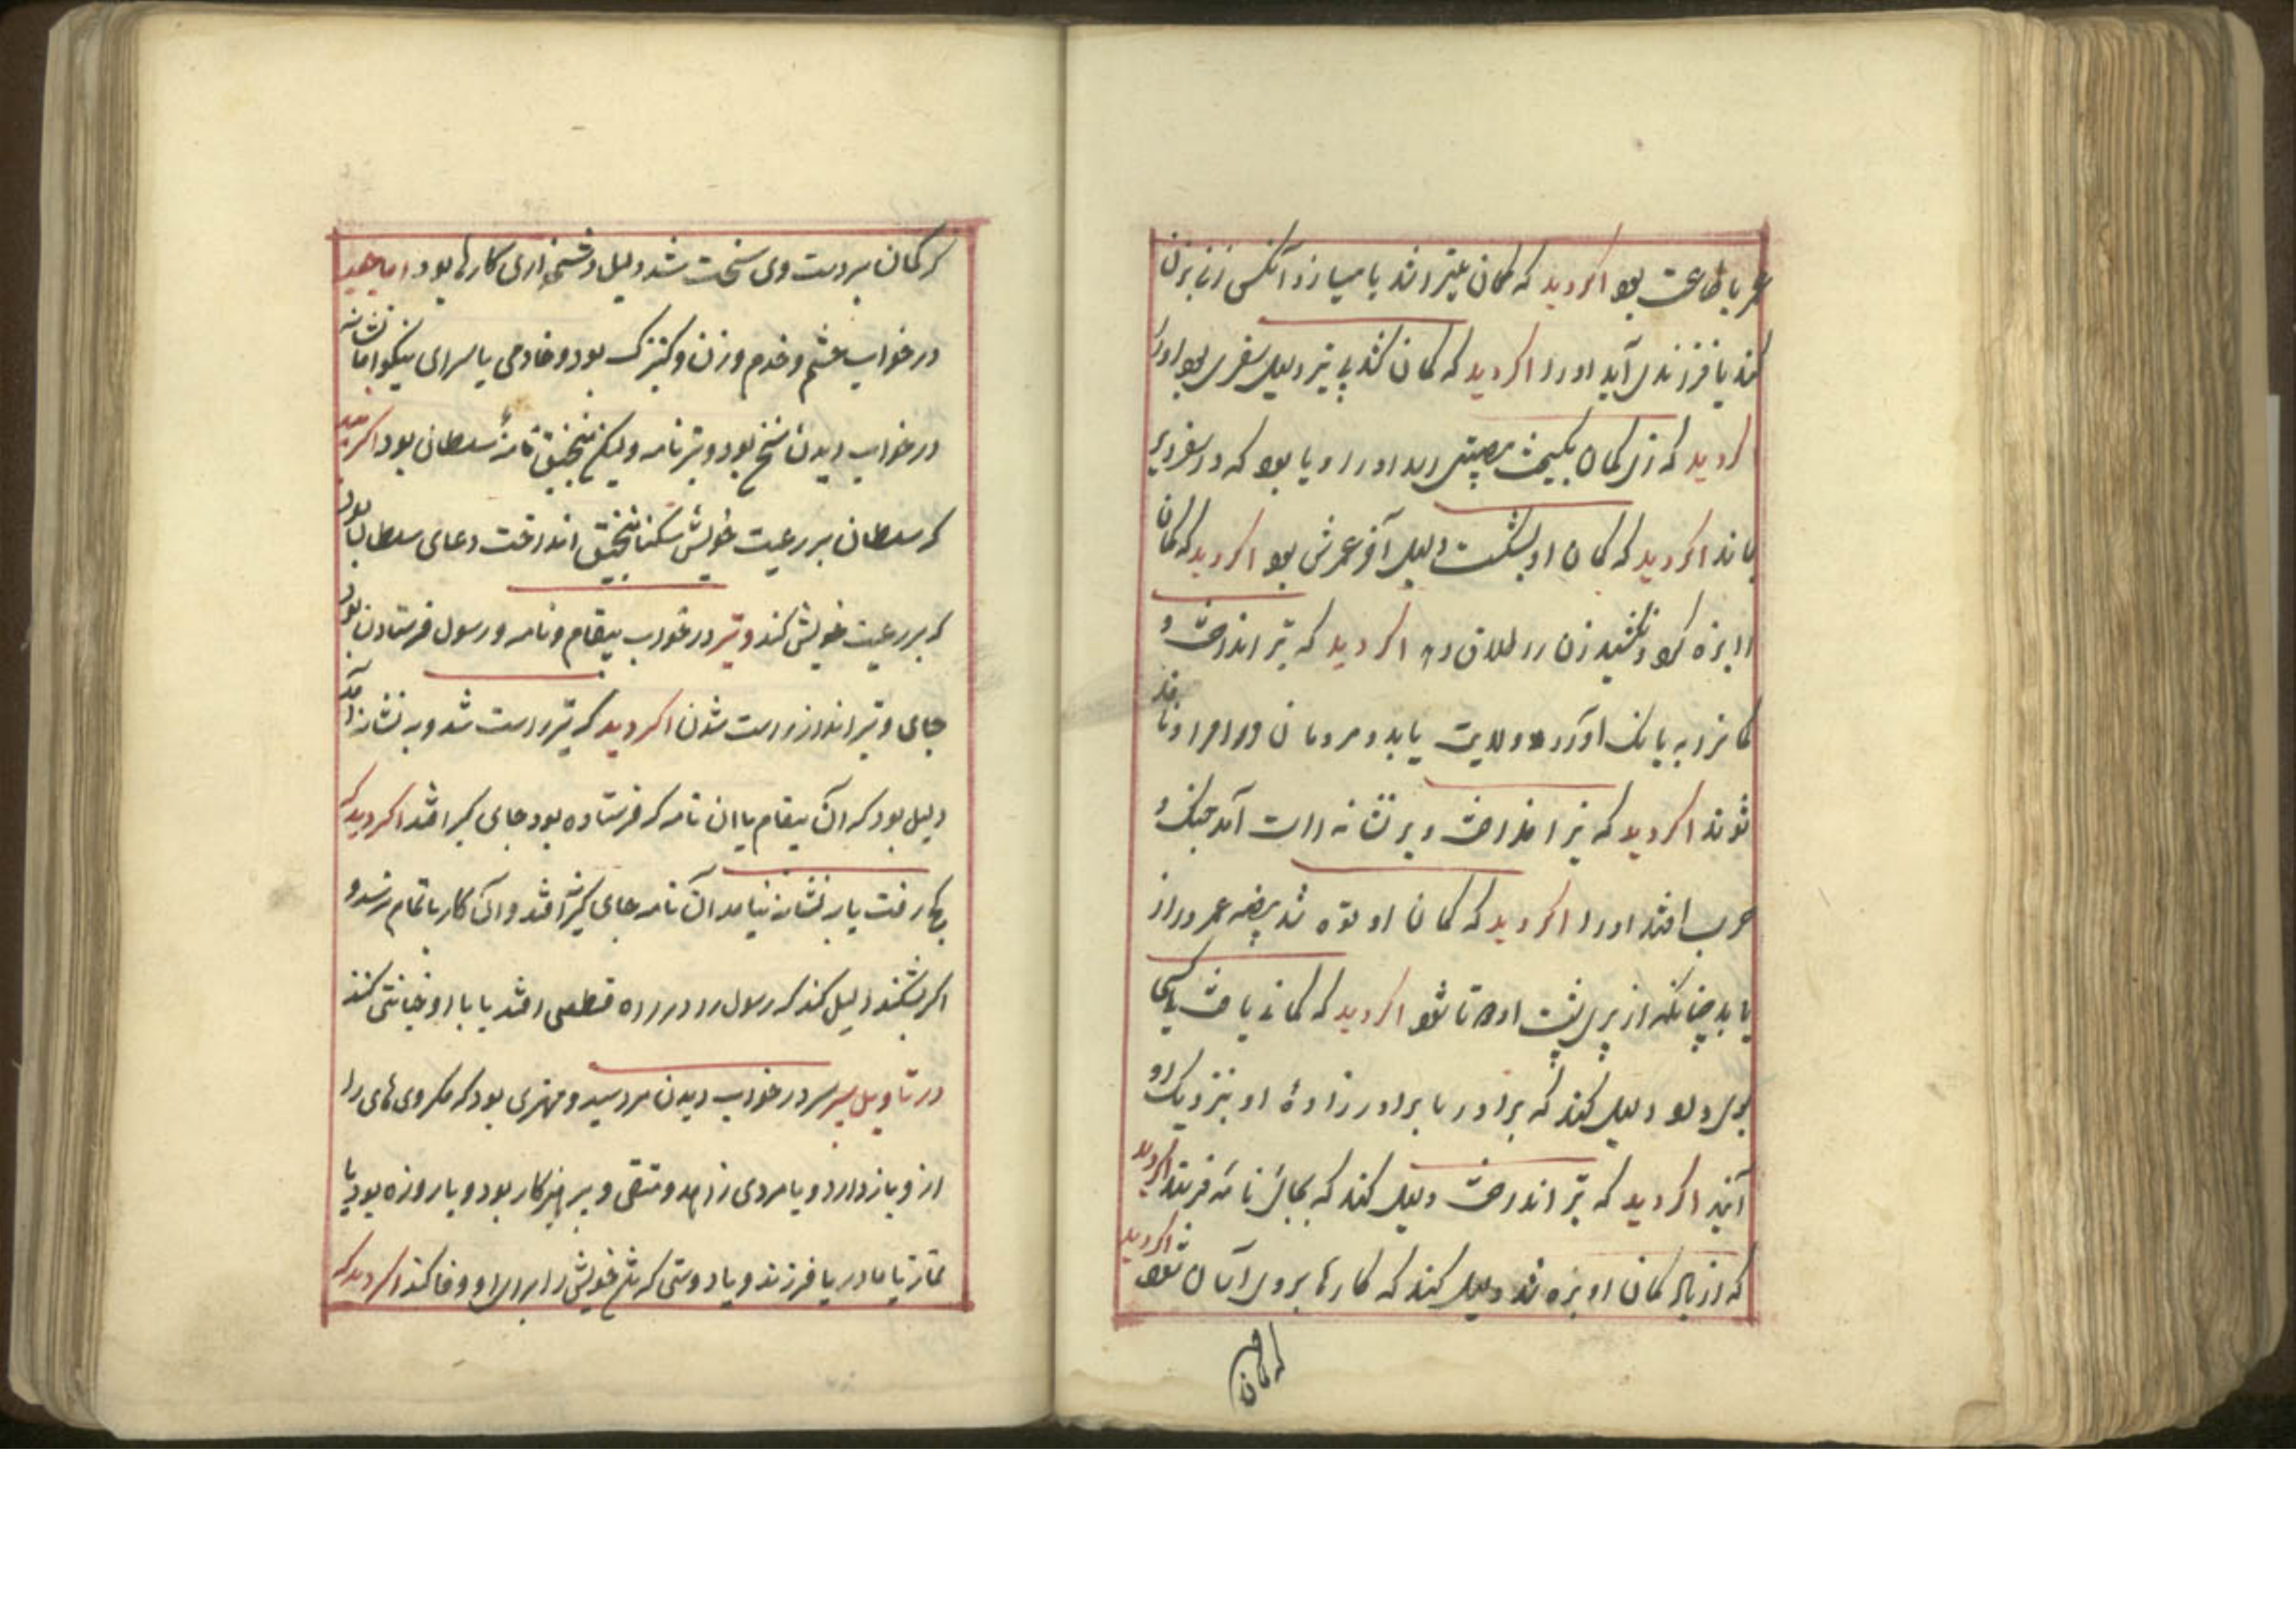 عمر با طاعت بود اکر دید که کمان میتراشد یا میسازد آنکس زنی بزن
کند یا فرزندی آید او را اکر دید که کمان کشد بی تیر دلیل سفری بود او را
اکر دید که زه کمان بکسیخت مصیبتی رسد او را و یا بود که در سفر دیر
بماند اکر دید که کمان او بشکست دلیل آخر عمرش بود اکر دید که کمان
را بزه کرد و نکشید زن را طلاق دهد اکر دید که تیر انداخت و
کمانرا به بانک آورد ولایت یابد و مردمان ورا
شوند اکر دید که تیر انداخت و بر نشانه راست آمد جنک و
حرب افتد او را اکر دید که کمان او شد عمر دراز
یابد چنانکه از پیری پشت او دوتا شود اکر دید که کمانی یافت یا کسی
بوی داد دلیل کند که برادر یا برادرزادهٔ او بنزدیک او
آید اکر دید که تیر انداخت دلیل کند که بجای نامه فرستد اکر دید
که از بالا کمان او بزه شد دلیل کند که کارها بر وی آسان شود اکر دید
که کمان
که کمان بر دست وی سخت شد دلیل دشخواری کارها بود اما
در خواب حشم و خدم و زن و کنیزک بود و خادمی یا سرای نیکو اما نشانه
در خواب دیدن بود و تیر نامه ولیکن منجنیق نامهٔ سلطانی بود اکر دید
که سلطان بر رعیت خویش سنک منجنیق انداخت دعای سلطان بود
که بر رعیت خویش کند و تیر در خواب پیغام و نامه و رسول فرستادن بود
جای و تیر انداز و راست شدن اکر دید که تیر راست شد و به نشانه آمد
دلیل بود که آن پیغام یا آن نامه که فرستاده بود جای کیر افتد اکر دید که
کژ رفت یا بر نشانه نیامد آن نامه جای کیر نه افتد و آن کار باتمام نرسد و
اکر بشکند دلیل کند که رسول را در راه قطعی افتد یا با او خیانتی کنند
در تاویل سپر سپر در خواب دیدن مرد سید و مهتری بود که مکروی‌های را
از و باز دارد و یا مردی زاهد و متقی و پرهیزکار بود و یا روزه بود یا
نماز یا مادر یا فرزند و یا دوستی که تن خویش را برای او وفا کند اکر دید که